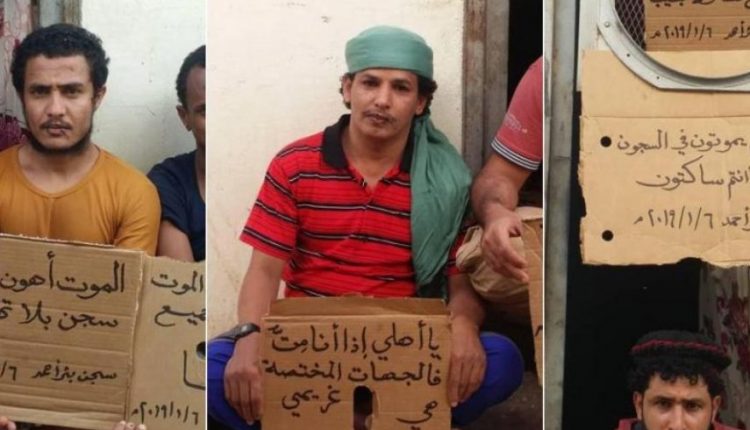 الموت أهون
سجن بلا
سجن بئر أحمد ١/٦
الموت
ميع
٢٠١٩/١/٦م
يا أهلي إذا أنا متّ
فالجهات المختصة
هي غريمي
٢٠١٩/١/٦م
يموتون في السجون
انتم ساكتون
احمد ٢٠١٩/١/٦م